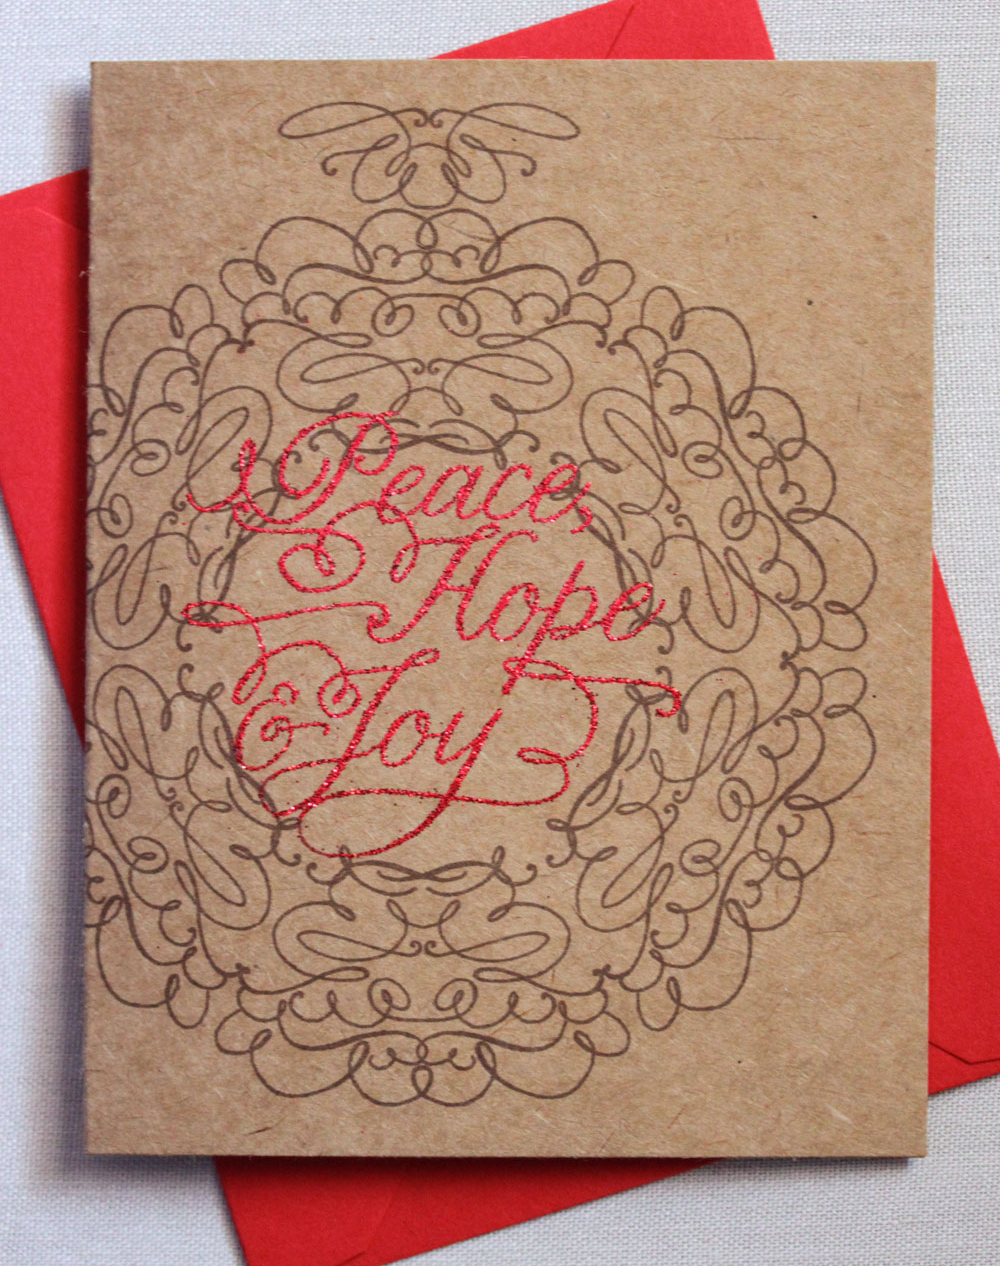 Peace,
Hope
& Joy